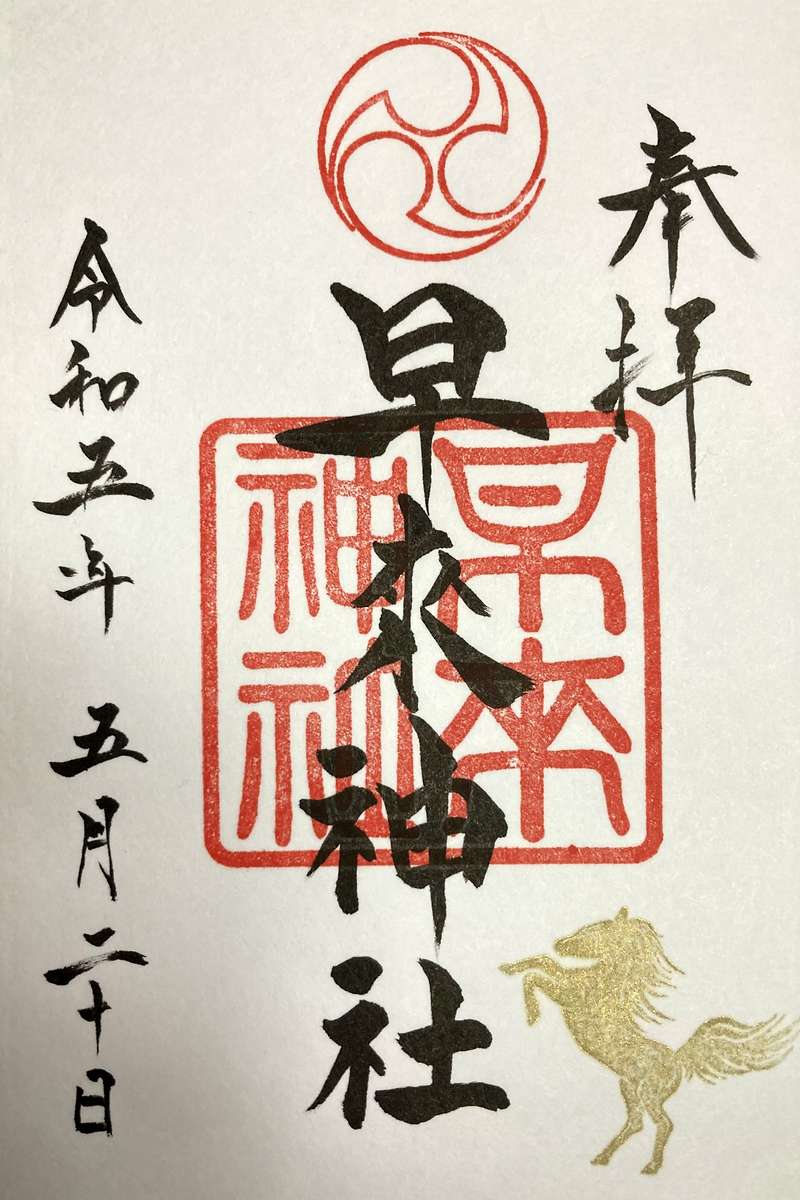 奉拝
早来神社
早来
神社
令和五年 五月二十日